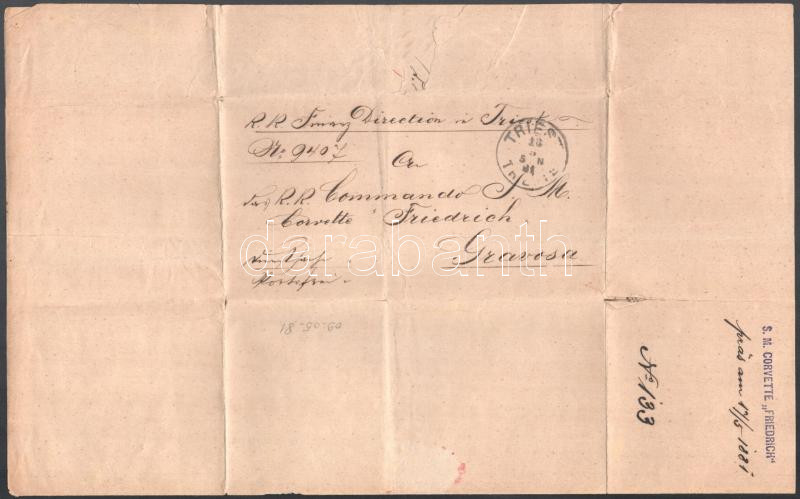 K. K. Finanz Direction in Triest
No. 9407
An
das K. K. Commando S. M.
Corvette Friedrich
Gravosa
Portofrei
TRIEST
5 N
81
TRIESTE
09.05.81
No 133
S. M. CORVETTE „FRIEDRICH“
präs am 17/5 1881
darabanth